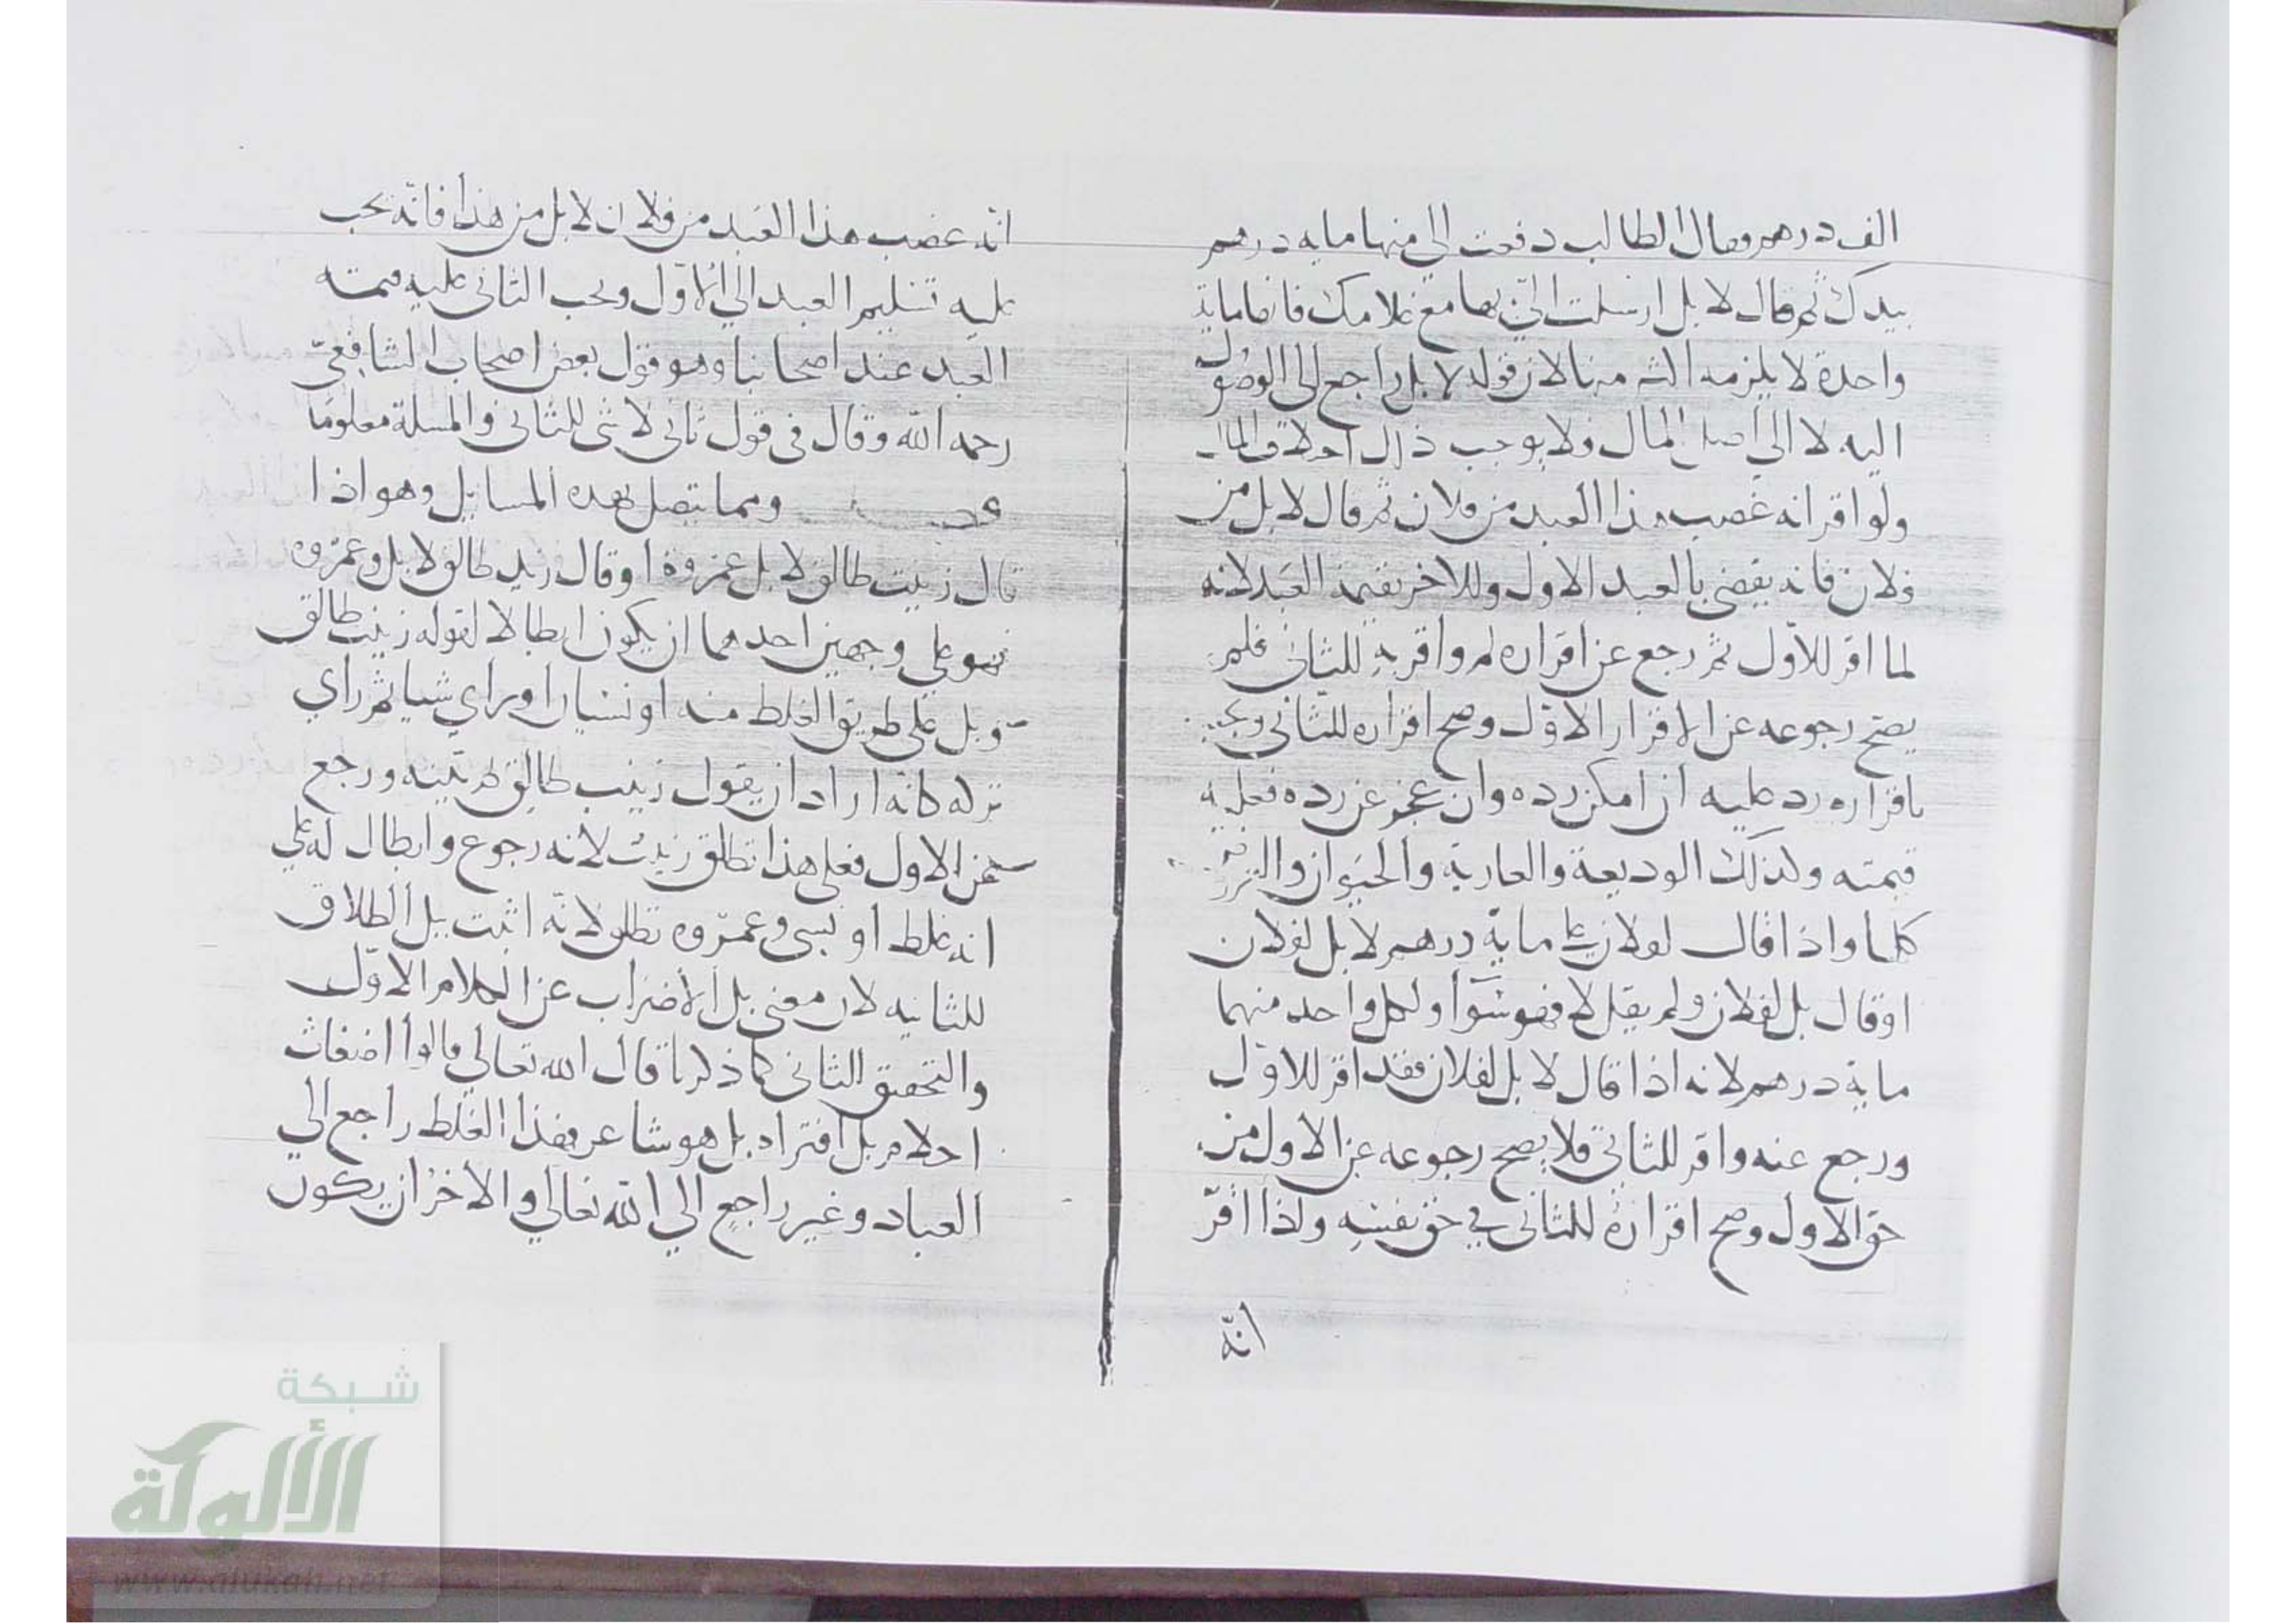 الف درهم وقال الطالب دفعت الى منها مايه درهم
بيدك ثم قال لا بل ارسلت الىّ بها مع غلامك فانها ماية
واحدة لا يلزمه منها لان قوله لا بل راجع الى الوصول
اليه لا الى اصل المال ولا يوجب ذلك
ولو اقر انه غصب هذا العبد من فلان ثم قال لا بل من
فلان فانه يقضى بالعبد الاول وللاخر بقيمة العبد لانه
لما اقر للاوّل ثم رجع عن اقراره له واقر به للثانى فلم
يصح رجوعه عن الاقرار الاوّل وصح اقراره للثانى
باقراره رد عليه ان امكن رده وان عجز عن رده فعليه
قيمته وكذلك الوديعة والعارية والحيوان
كلها واذا قال لفلان على ماية درهم لا بل لفلان
او قال بل لفلان ولم يقل لا فهو سوآ ولكل واحد منهما
ماية درهم لانه اذا قال لا بل لفلان فقد اقر للاوّل
ورجع عنه واقر للثانى فلا يصح رجوعه عن الاول من
حق الاول وصح اقراره للثانى في حق نفسه ولذا اقرّ
انّه
انّه غصب هذا العبد من فلان لا بل من هذا فانّه يجب
عليه تسليم العبد الي الاوّل ويجب الثانى عليه قيمته
العبد عند اصحابنا وهو قول بعض اصحاب الشافعيّ
رحمه الله وقال فى قول ثانى لا شى للثانى والمسلة معلومًا
ومما يتصل بهده المسايل وهو اذا
قال زينب طالق لا بل عمروة او قال زينب طالق لا بل وعمروه
فهو على وجهين احدهما ان يكون ابطالا لقوله زينب طالق
وبل على طريق الغلط منه او نسيان او راي شيا ثم راي
تركه كانه اراد ان يقول زينب طالق ورجع
عن الاول فعلى هذا تطلق زينب لانه رجوع وابطال له على
انه غلط او نسى وعمروه تطلق لانّه اثبت ببل الطلاق
للثانيه لان معنى بل الاضراب عن الكلام الاوّل
والتحقيق الثانى كما ذكرنا قال الله تعالي قالوا اضغاث
احلام بل افتراه بل هو شاعر فهذا الغلط راجع الي
العباد وغير راجع الي الله تعالي والاخر ان يكون
شبكة
الألوكة
www.alukah.net